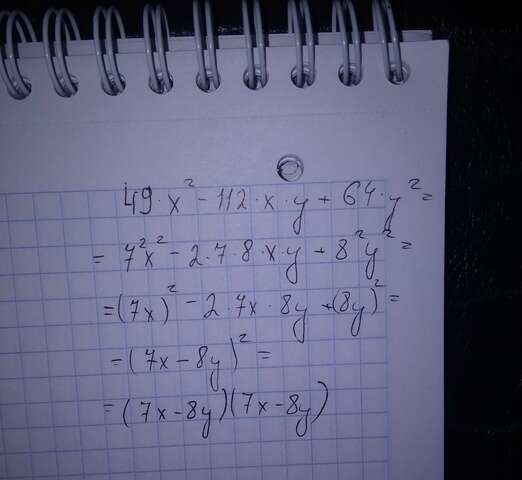 49·x² - 112·x·y + 64·y² =
= 7²x² - 2·7·8·x·y + 8²y² =
= (7x)² - 2·7x·8y + (8y)² =
= (7x - 8y)² =
= (7x - 8y)(7x - 8y)